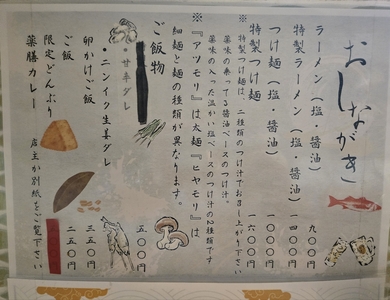 おしながき
ラーメン(塩・醤油) 九〇〇円
特製ラーメン(塩・醤油) 一四〇〇円
つけ麺(塩・醤油) 一〇〇〇円
特製つけ麺 一六〇〇円
※特製つけ麺は、二種類のつけ汁でお召し上がり下さい
薬味の乗ってる醤油ベースのつけ汁。
薬味の入った温かい塩ベースのつけ汁の2種類です
※『アツモリ』は太麺『ヒヤモリ』は
細麺と麺の種類が異なります。
ご飯物
甘辛ダレ
・ニンイク生姜ダレ 五〇〇円
卵かけご飯 三五〇円
ご飯 二五〇円
限定どんぶり
薬膳カレー 店主か別紙をご覧下さい